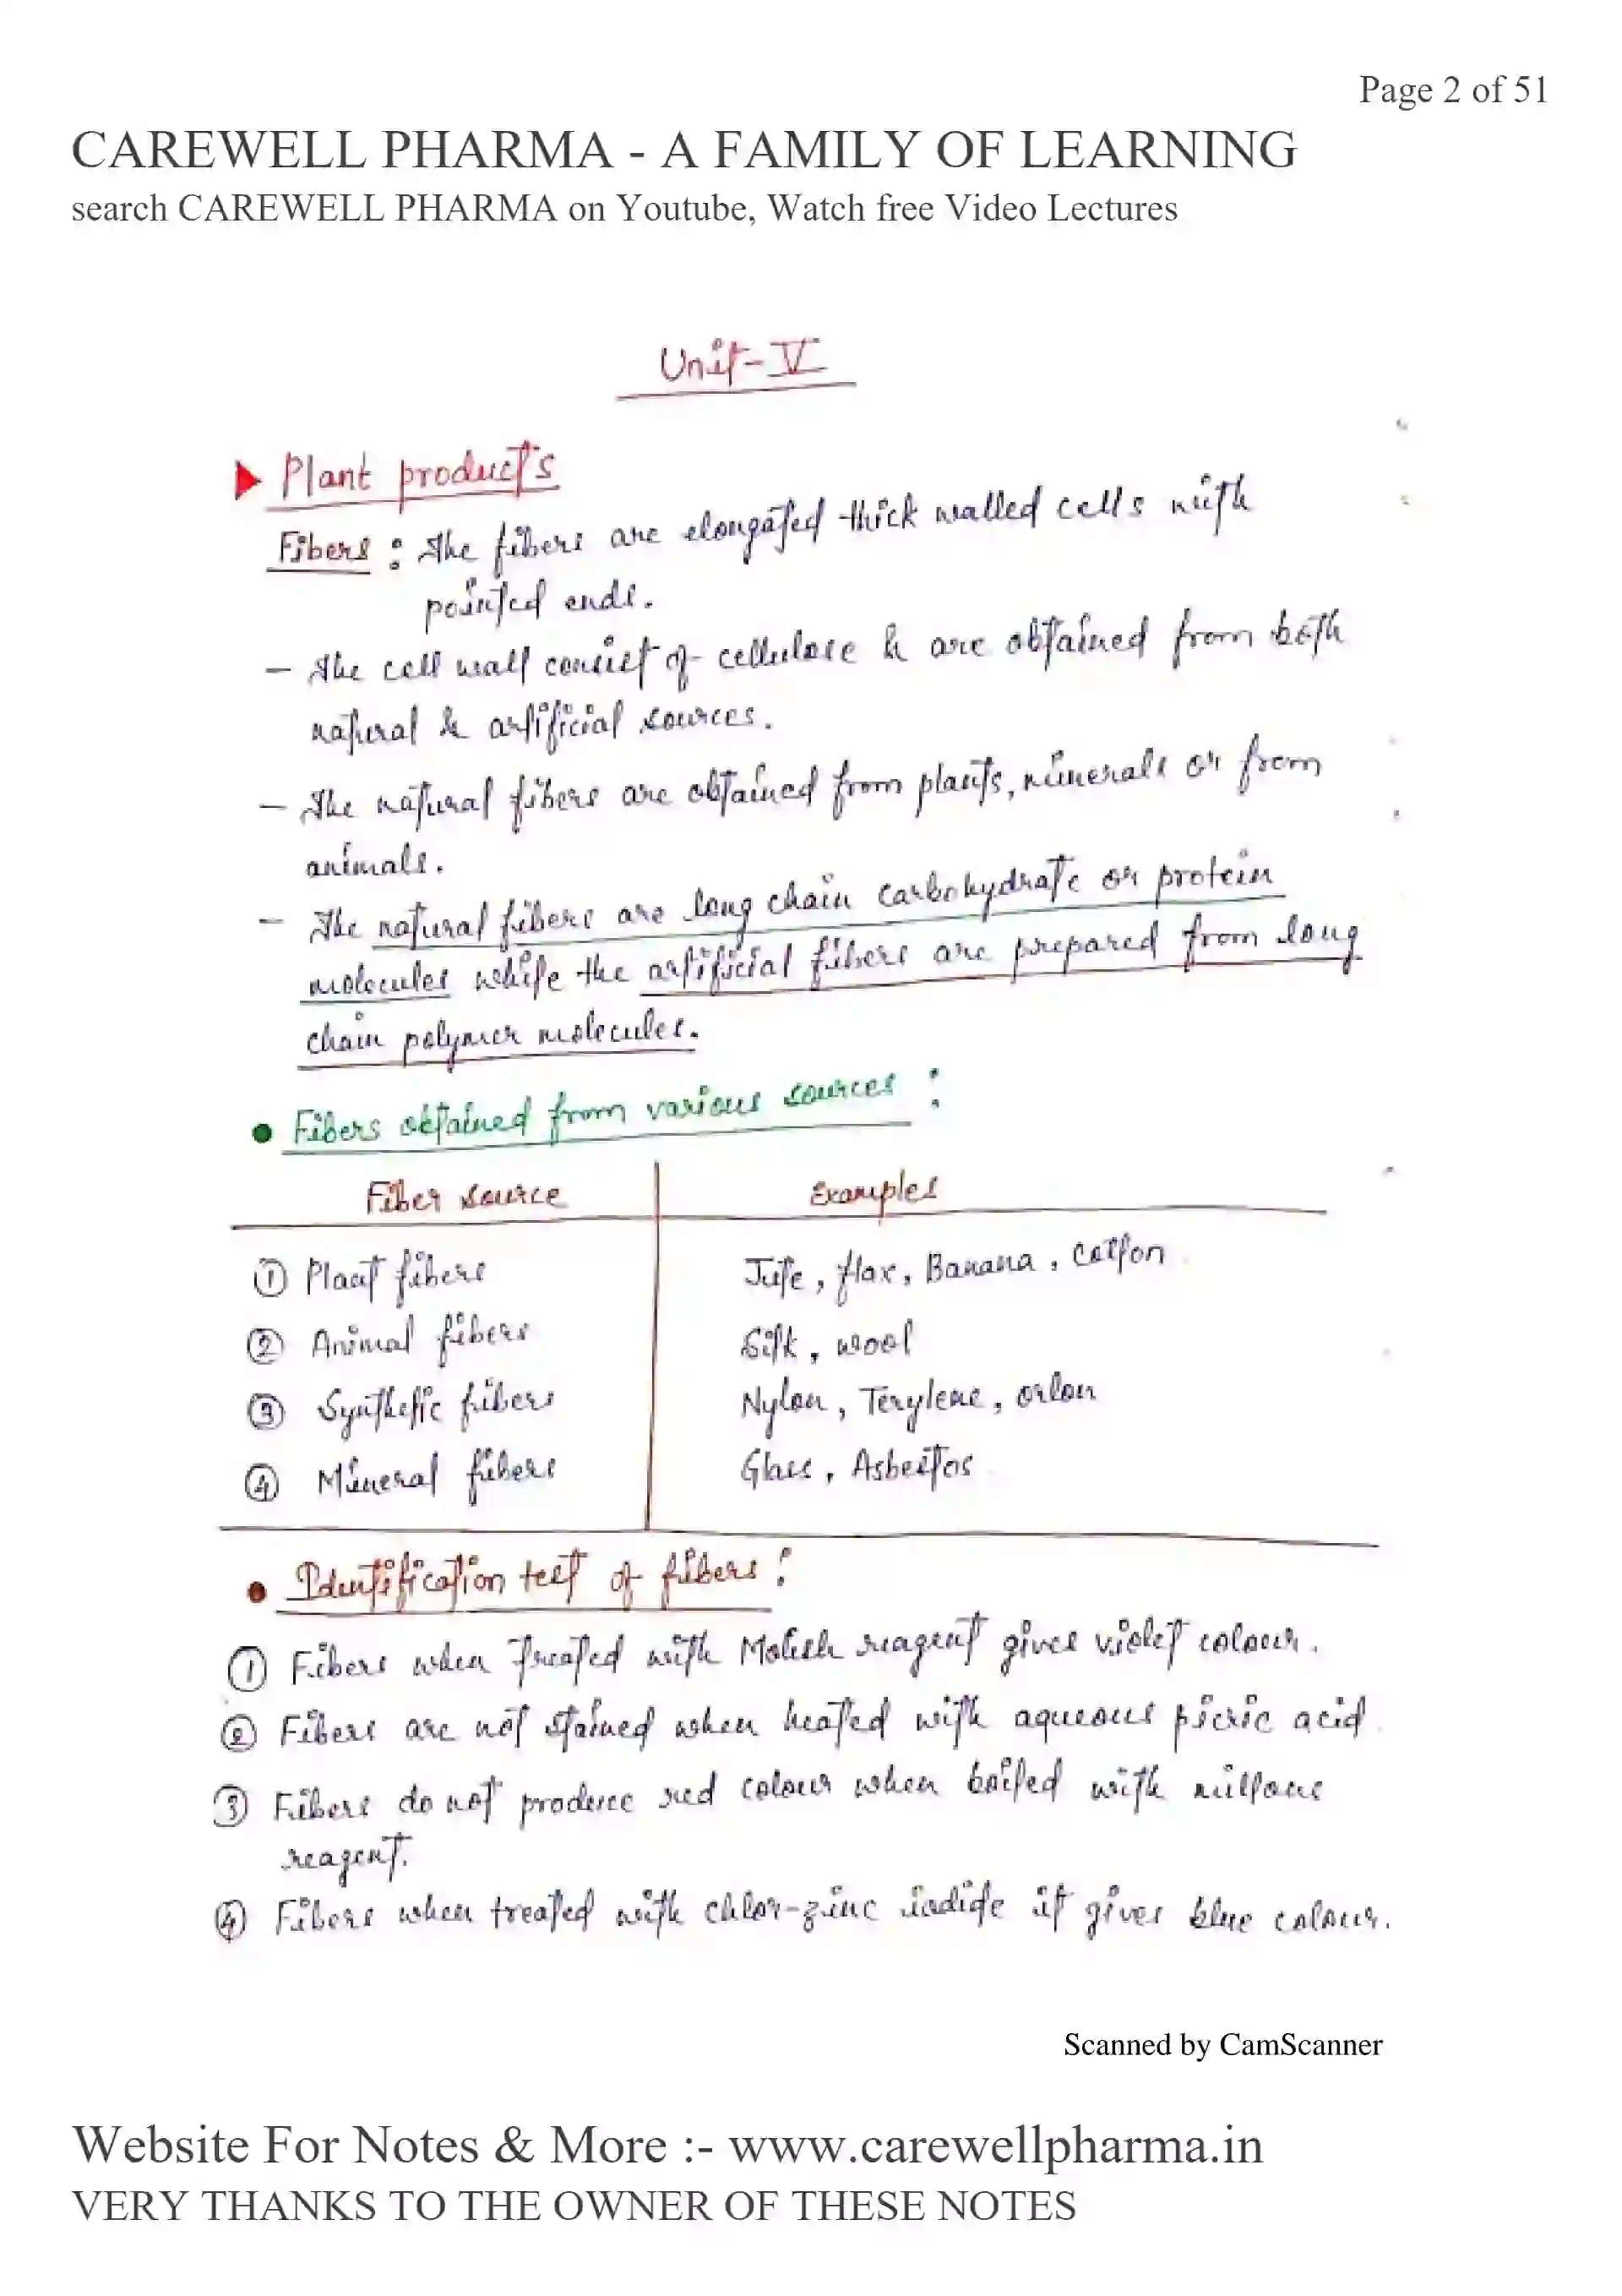 Page 2 of 51
CAREWELL PHARMA - A FAMILY OF LEARNING
search CAREWELL PHARMA on Youtube, Watch free Video Lectures
Unit-V
Plant product's
Fibers : The fibers are elongated thick walled cells with
pointed ends.
- The cell wall consist of cellulose & are obtained from both
natural & artificial sources.
- The natural fibers are obtained from plants, minerals or from
animals.
- The natural fibers are long chain carbohydrate or protein
molecules while the artificial fibers are prepared from long
chain polymer molecules.
• Fibers obtained from various sources :
Fiber source Examples
① Plant fibers Jute, flax, Banana, Cotton
② Animal fibers Silk, wool
③ Synthetic fibers Nylon, Terylene, orlon
④ Mineral fibers Glass, Asbestos
• Identification test of fibers :
① Fibers when treated with Molish reagent gives violet colour.
② Fibers are not stained when heated with aqueous picric acid
③ Fibers do not produce red colour when boiled with millons
reagent.
④ Fibers when treated with chlor-zinc iodide it gives blue colour.
Scanned by CamScanner
Website For Notes & More :- www.carewellpharma.in
VERY THANKS TO THE OWNER OF THESE NOTES